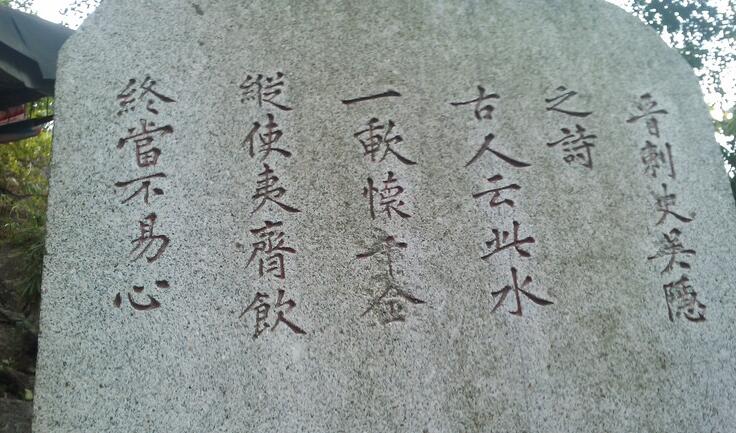 晉刺史吳隱
之詩
古人云此水
一歃懷千金
縱使夷齊飲
終當不易心